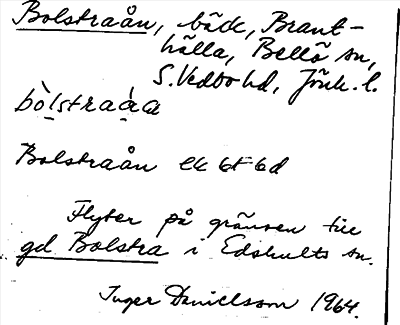 Bolstraån, bäck, Brant-
hälla, Bellö sn,
S. Vedbo hd, Jönk. l.
bò̩lstraạ̀a
Bolstraån ek 6f 6d
Flyter på gränsen till
gd Bolstra i Edshults sn.
Inger Danielsson 1964.